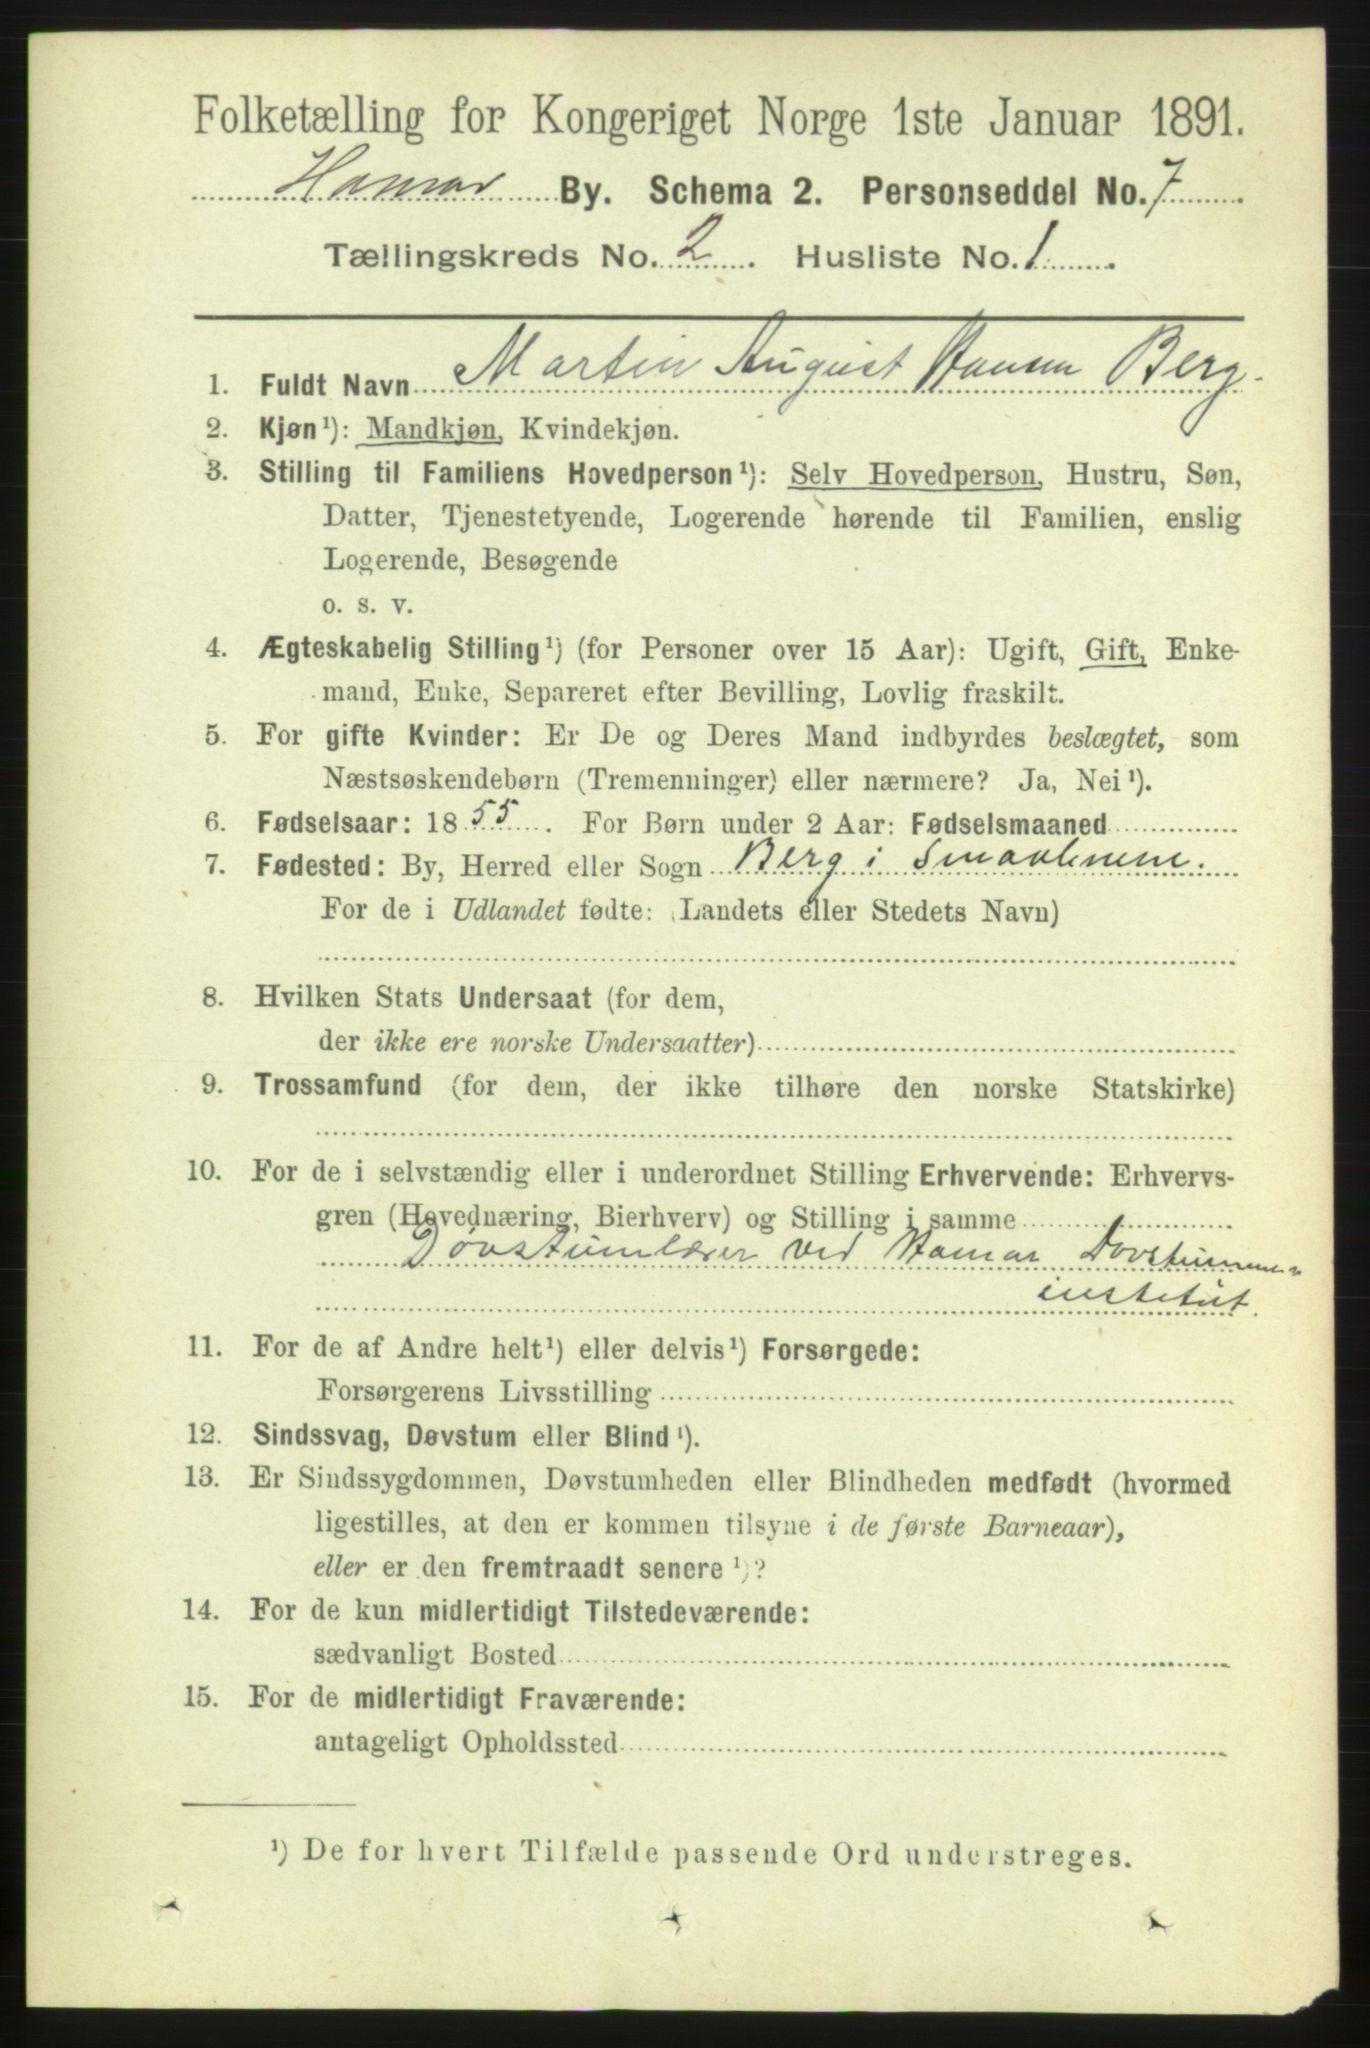 Folketælling for Kongeriget Norge 1ste Januar 1891.
Hamar By. Schema 2. Personseddel No. 7
Tællingskreds No. 2. Husliste No. 1
1. Fuldt Navn Martin August Hansen Berg.
2. Kjøn¹): Mandkjøn, Kvindekjøn.
3. Stilling til Familiens Hovedperson¹): Selv Hovedperson, Hustru, Søn,
Datter, Tjenestetyende, Logerende hørende til Familien, enslig
Logerende, Besøgende
o. s. v.
4. Ægteskabelig Stilling¹) (for Personer over 15 Aar): Ugift, Gift, Enke-
mand, Enke, Separeret efter Bevilling, Lovlig fraskilt.
5. For gifte Kvinder: Er De og Deres Mand indbyrdes beslægtet, som
Næstsøskendebørn (Tremenninger) eller nærmere? Ja, Nei¹).
6. Fødselsaar: 1855. For Børn under 2 Aar: Fødselsmaaned
7. Fødested: By, Herred eller Sogn Berg i Smaalenene.
For de i Udlandet fødte: (Landets eller Stedets Navn)
8. Hvilken Stats Undersaat (for dem,
der ikke ere norske Undersaatter)
9. Trossamfund (for dem, der ikke tilhøre den norske Statskirke)
10. For de i selvstændig eller i underordnet Stilling Erhvervende: Erhvervs-
gren (Hovednæring, Bierhverv) og Stilling i samme
Døvstumlærer ved Hamar Døvstumme-
institut.
11. For de af Andre helt¹) eller delvis¹) Forsørgede:
Forsørgerens Livsstilling
12. Sindssvag, Døvstum eller Blind¹).
13. Er Sindssygdommen, Døvstumheden eller Blindheden medfødt (hvormed
ligestilles, at den er kommen tilsyne i de første Barneaar),
eller er den fremtraadt senere¹)?
14. For de kun midlertidigt Tilstedeværende:
sædvanligt Bosted
15. For de midlertidigt Fraværende:
antageligt Opholdssted
¹) De for hvert Tilfælde passende Ord understreges.